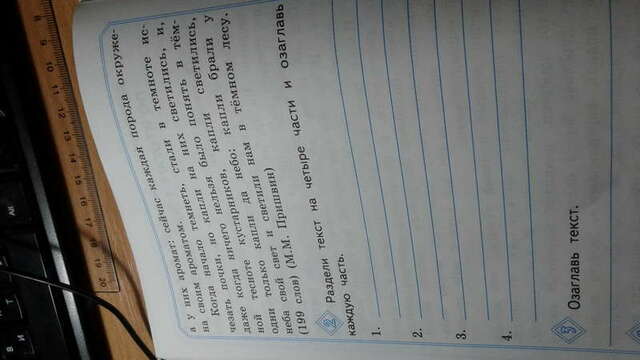 20 19 18 17 16 15 14 13 12 11 10 9 8
а у них аромат: сейчас каждая порода окруже-
на своим ароматом.
Когда начало темнеть, стали в темноте ис-
чезать почки, но капли на них светились, и,
даже когда ничего нельзя было понять в тём-
ной тесноте кустарников, капли светились,
одни только капли да небо: капли брали у
неба свой свет и светили нам в тёмном лесу.
(199 слов) (М.М. Пришвин)
2 Раздели текст на четыре части и озаглавь
каждую часть.
1.
2.
3.
4.
3 Озаглавь текст.